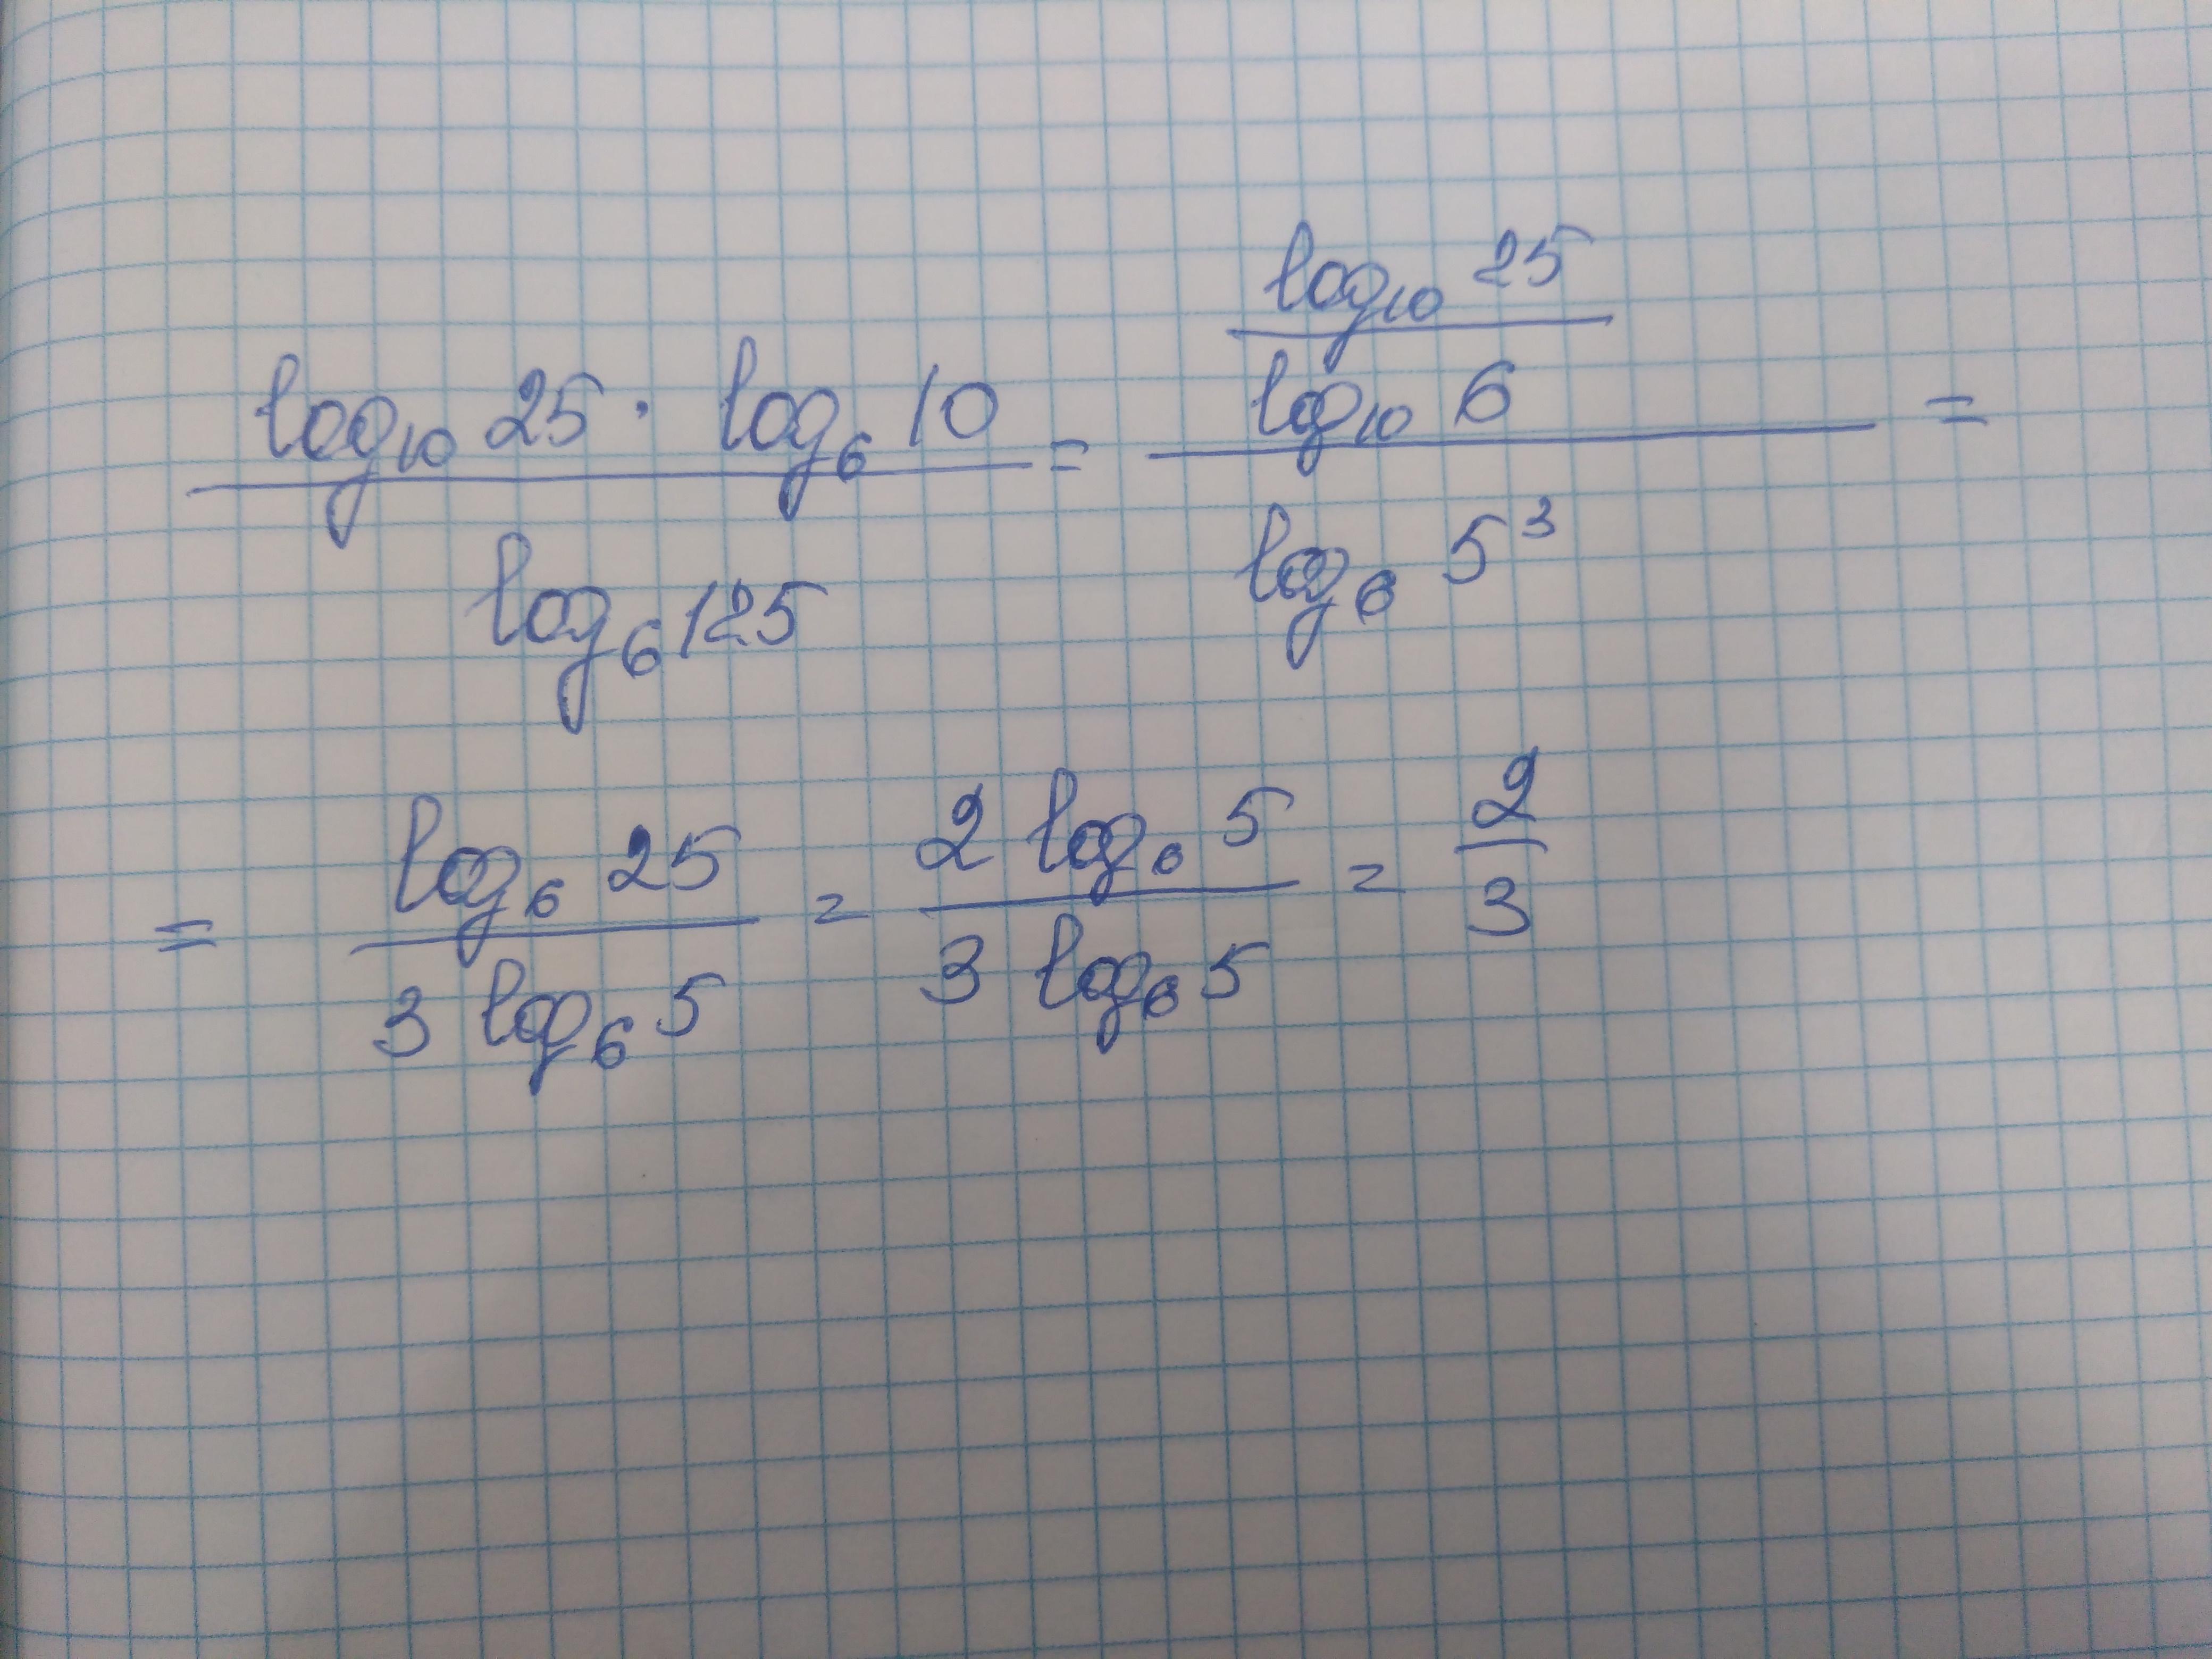 log₁₀ 25 · log₆ 10 / log₆ 125 = (log₁₀ 25 / log₁₀ 6) / log₆ 5³ =
= log₆ 25 / 3 log₆ 5 = 2 log₆ 5 / 3 log₆ 5 = 2/3